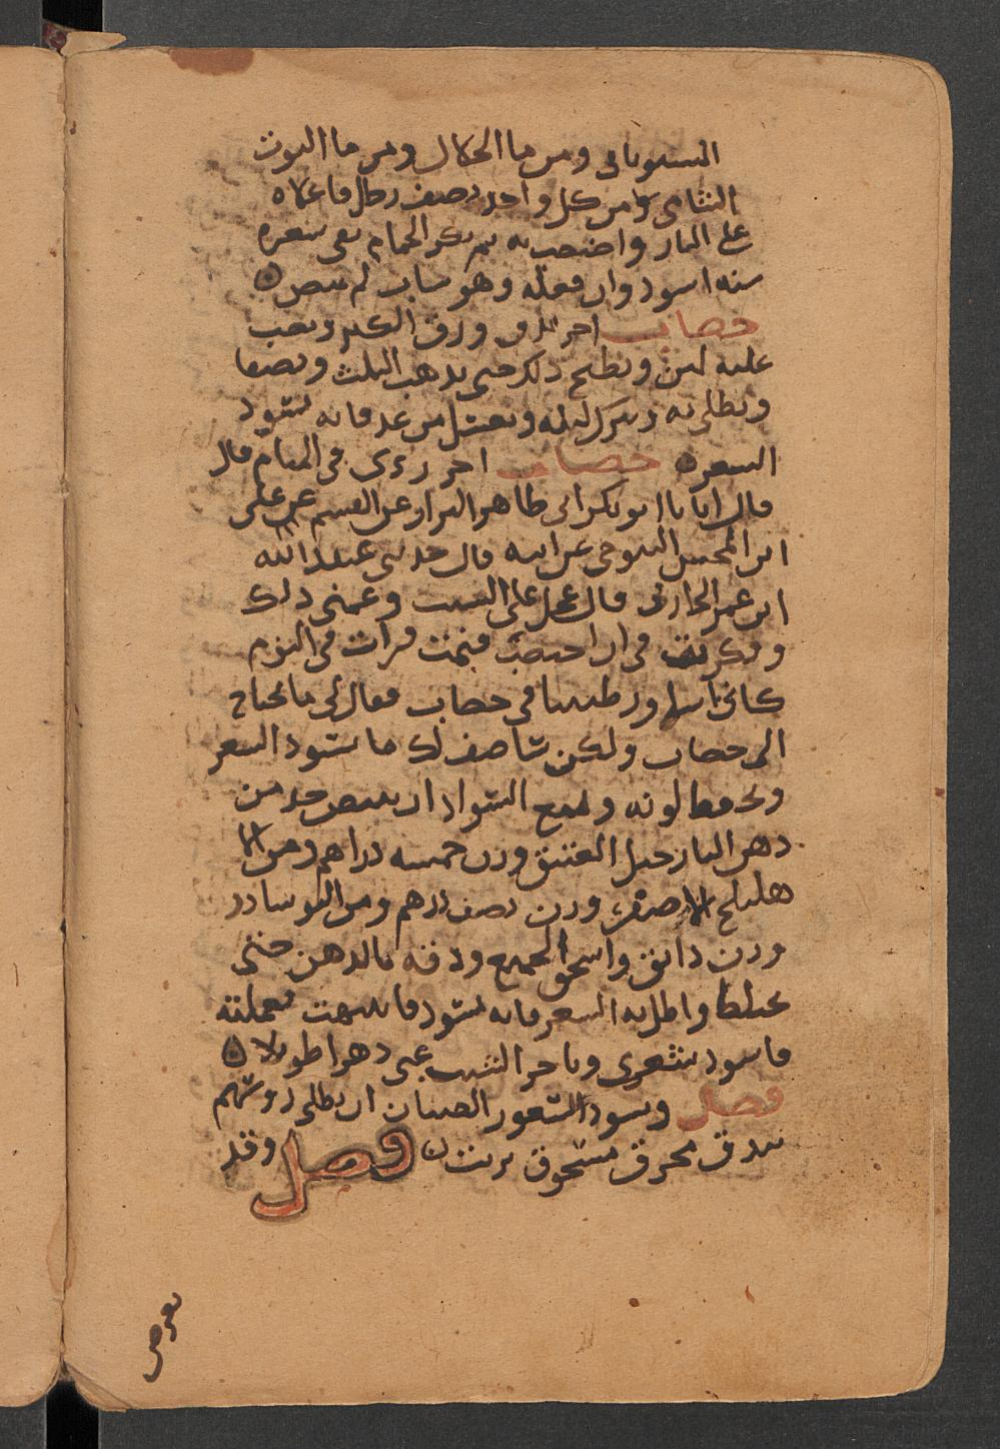 ومن ما الخلال ومن ما التوث
الشامى ومن كل واحد نصف رطل فاغلاه
على النار واختضب به ثم بكر الحمام بقى شعره
سنه اسود وان فعله وهو شاب لم
خضاب اخر ورق الكبر ويصب
عليه لبن ويطبخ ذلك حتى يذهب الثلث ويصفا
ويطلى به ويترك ليله ويغتسل من غد فانه يسود
الشعر خضاب اخر رءى فى المنام قال
قال انبانا ابو بكر ابن طاهر البزار عن القسم عن على
ابن المحسن التنوخى عن ابيه قال حدثنى عبد الله
ابن عمر الحارثى قال عجل على الشيب وغمنى ذلك
وفكرت فى ان اختضب فنمت فرات فى النوم
كانى طبيبا فى خضاب فقال لى ما تحتاج
الى خضاب ولكن ساصف لك ما يسود الشعر
ويحفظ لونه ويمنع السواد ان ينصل خذ من
دهن النارجيل العتيق وزن خمسه دراهم ومن الا
هليلج الاصفر وزن نصف درهم ومن النوشادر
وزن دانق واسحق الجميع ودفه بالدهن حتى
يختلط واطل به الشعر فانه يسود فانتبهت فعملته
فاسود شعرى وتاخر الشيب عنى دهرا طويلا
فصل ويسود شعور الصبيان ان يطلى روسهم
ببندق محرق مسحوق بزيت فصل وقد